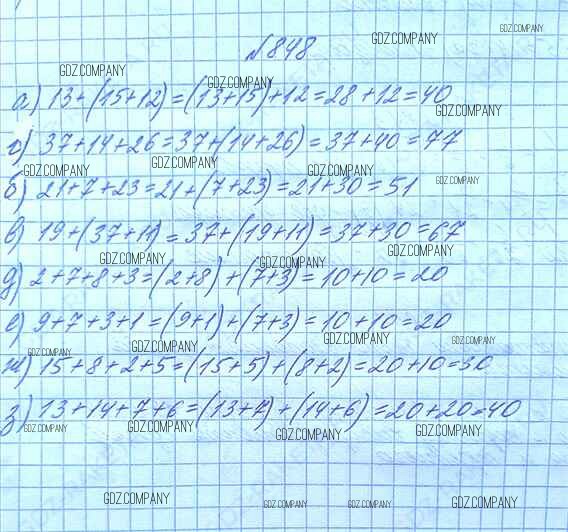 №848
GDZ.COMPANY GDZ.COMPANY
GDZ.COMPANY GDZ.COMPANY
а) 13+(15+12)=(13+15)+12=28+12=40
GDZ.COMPANY
г) 37+14+26=37+(14+26)=37+40=77
GDZ.COMPANY GDZ.COMPANY GDZ.COMPANY GDZ.COMPANY
б) 21+7+23=21+(7+23)=21+30=51
в) 19+(37+11)=37+(19+11)=37+30=67
GDZ.COMPANY GDZ.COMPANY GDZ.COMPANY
д) 2+7+8+3=(2+8)+(7+3)=10+10=20
е) 9+7+3+1=(9+1)+(7+3)=10+10=20
GDZ.COMPANY GDZ.COMPANY GDZ.COMPANY GDZ.COMPANY
ж) 15+8+2+5=(15+5)+(8+2)=20+10=30
з) 13+14+7+6=(13+7)+(14+6)=20+20=40
GDZ.COMPANY GDZ.COMPANY GDZ.COMPANY GDZ.COMPANY
GDZ.COMPANY GDZ.COMPANY GDZ.COMPANY GDZ.COMPANY